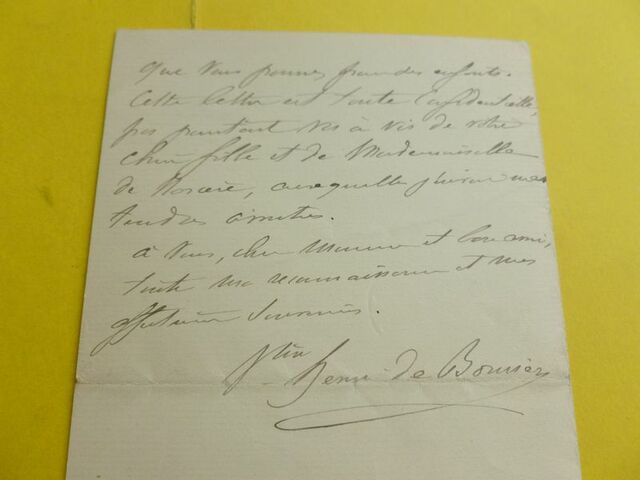 que vous prenez grandes enfants.
Cette lettre est toute confidentielle,
pas pourtant vis à vis de votre
chère fille et de Mademoiselle
de, auxquelles j'envoie mes
tendres amitiés.
à vous, cher Monsieur et bon ami,
toute ma reconnaissance et mes
affectueux souvenirs.
Vte Henri de Bornier